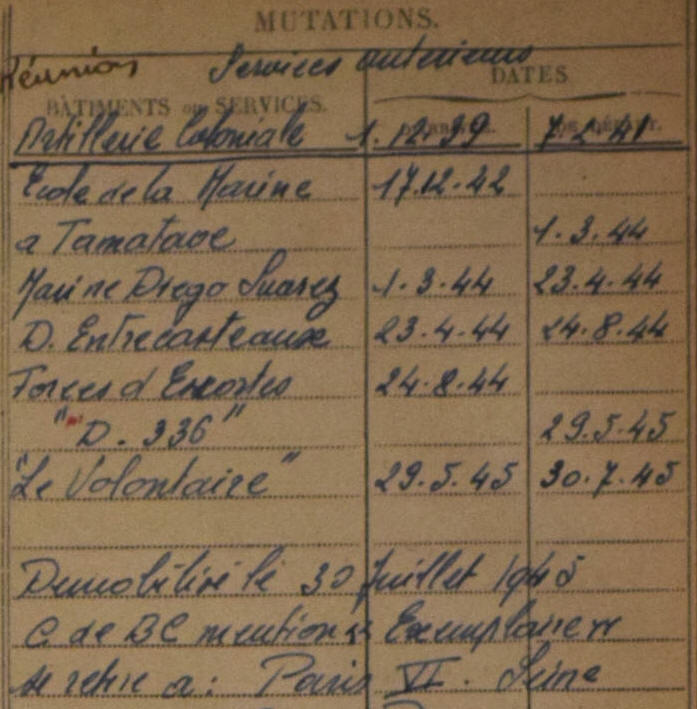 MUTATIONS.
Réunion Services anterieurs
DATES
BÂTIMENTS ou SERVICES.
D'ARRIVÉE. DE DÉPART.
Artillerie Coloniale 1.12.39 7.2.41
Ecole de la Marine 17.12.42
a Tamatave 1.3.44
Marine Diego Suarez 1.3.44 23.4.44
D. Entrecasteaux 23.4.44 24.8.44
Forces d'Escortes 24.8.44
"D. 336" 29.5.45
"Le Volontaire" 29.5.45 30.7.45
Demobilisé le 30 Juillet 1945
C de BC mention "Exemplaire"
se retire a: Paris VI. Seine